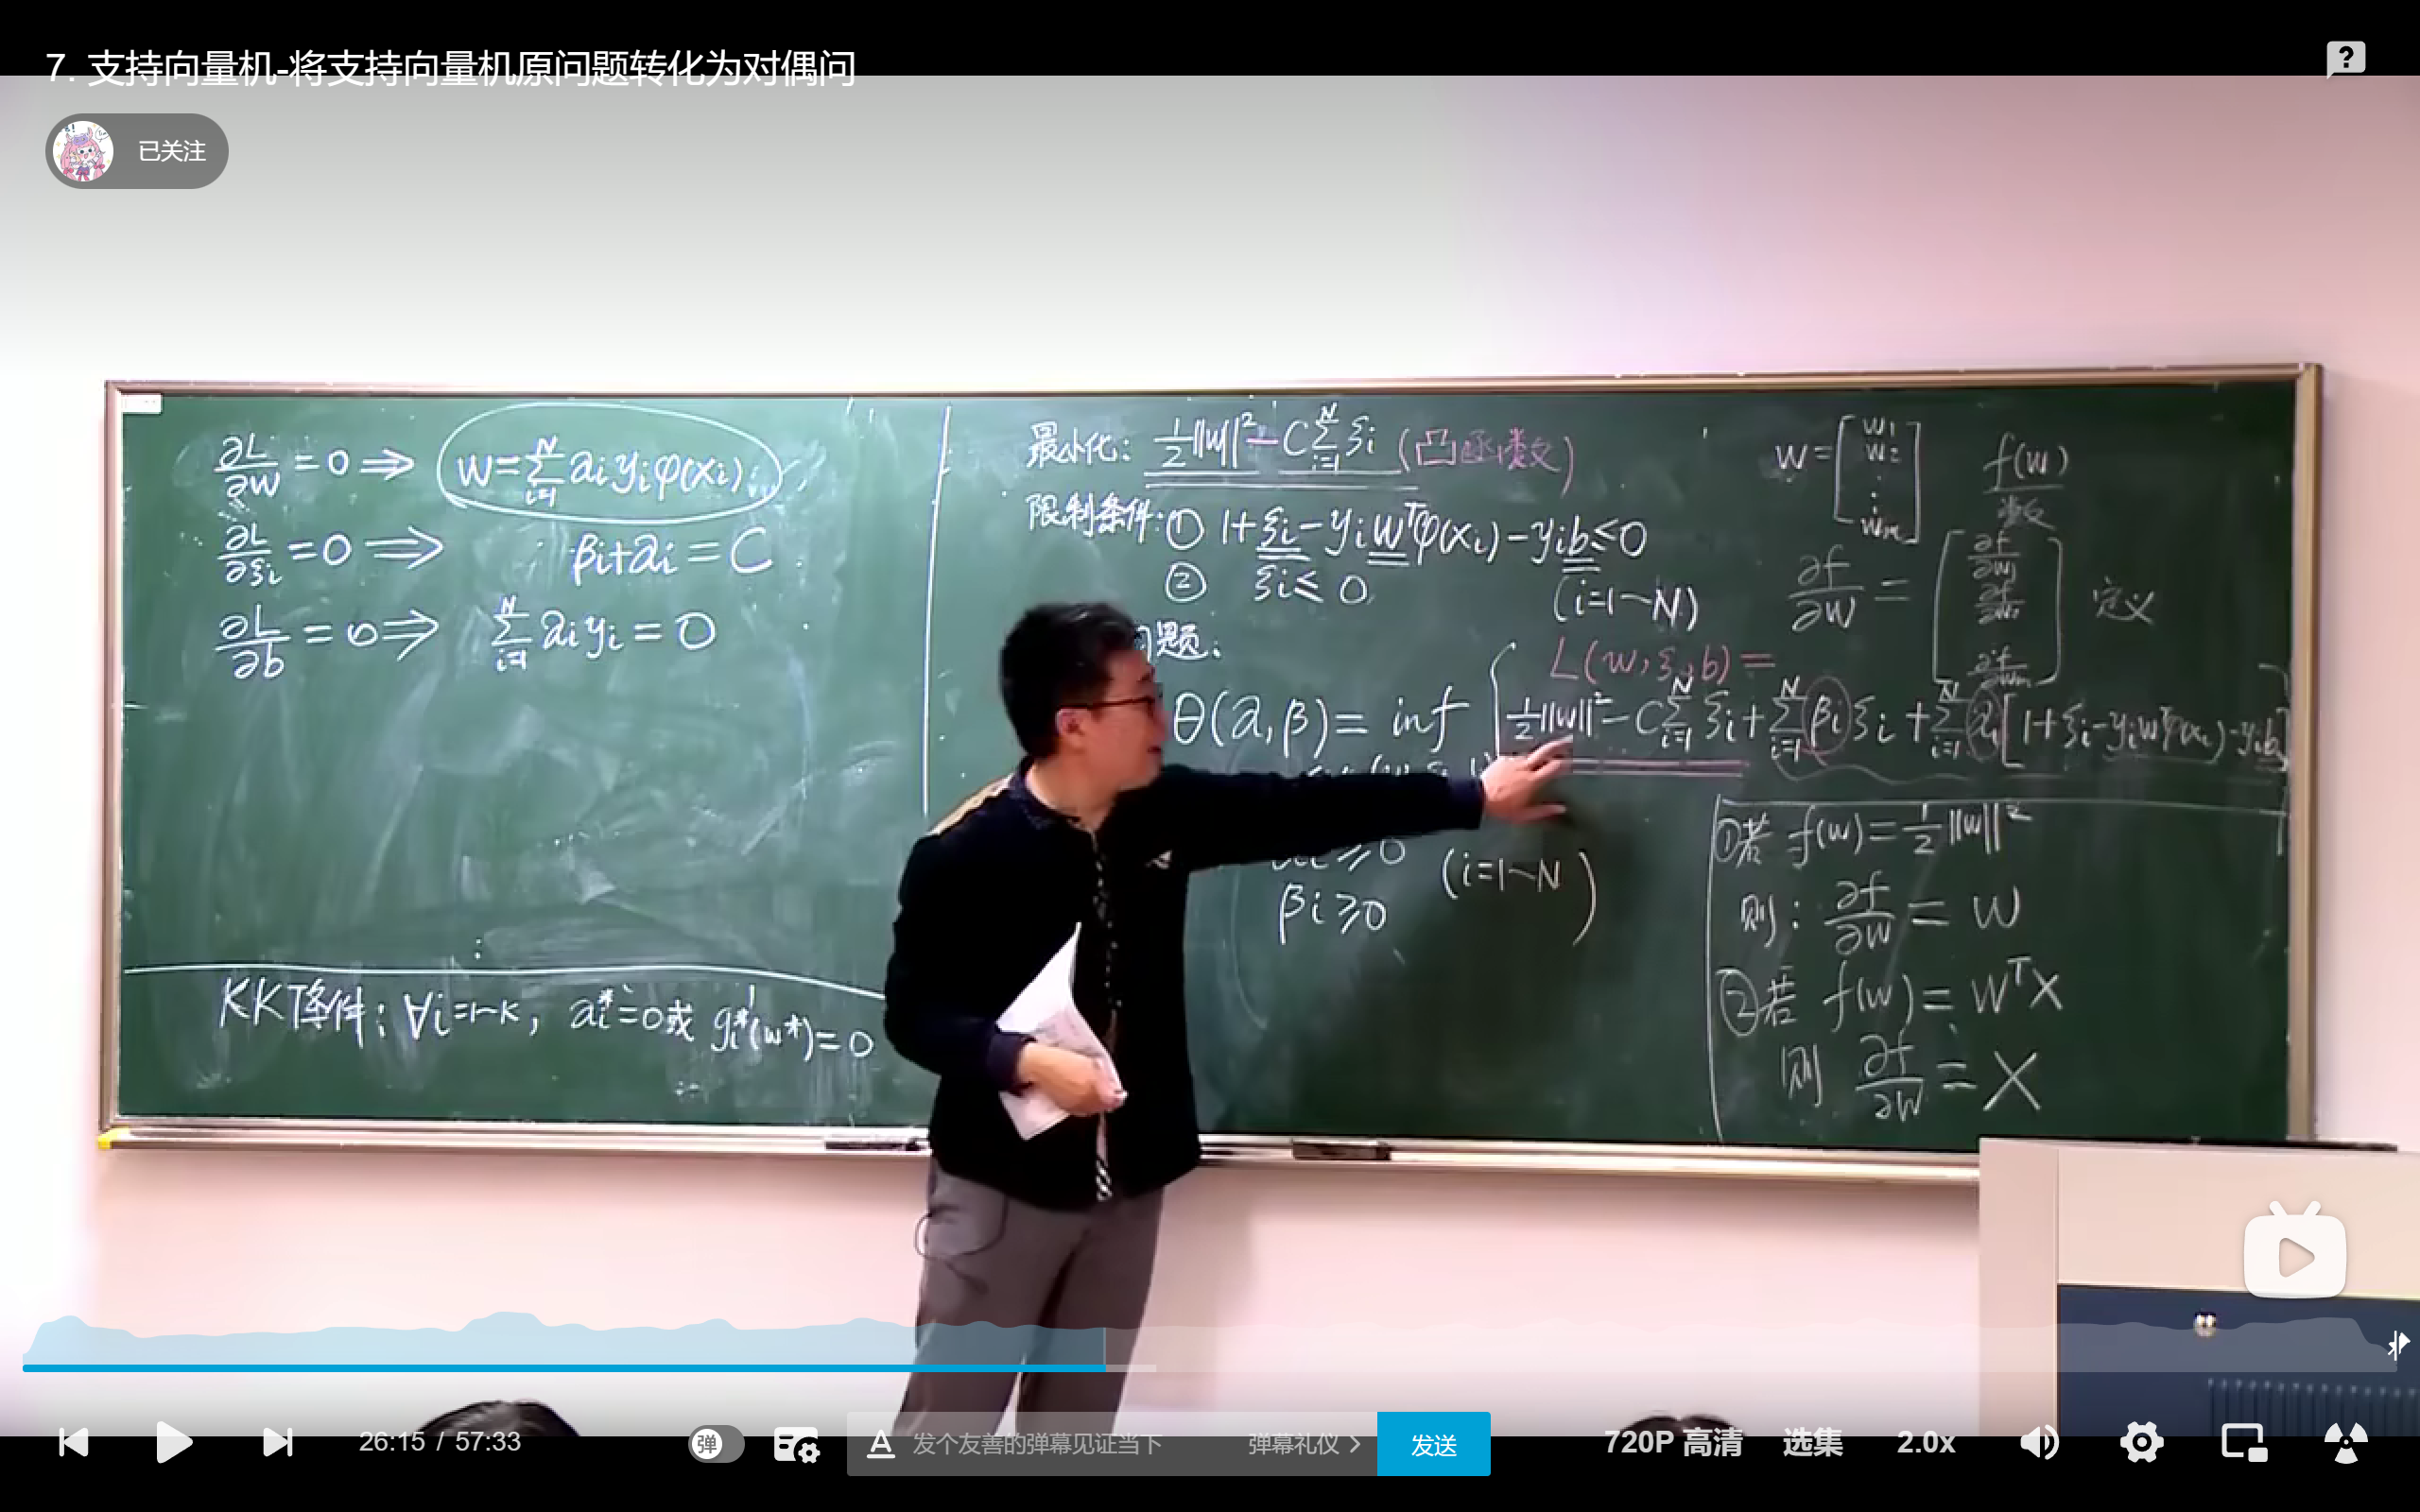 7. 支持向量机-将支持向量机原问题转化为对偶问
已关注
∂L/∂w = 0 ⇒ w = Σ_{i=1}^{N} αi yi φ(xi)
∂L/∂ξi = 0 ⇒ βi + αi = C
∂L/∂b = 0 ⇒ Σ_{i=1}^{N} αi yi = 0
KKT条件: ∀i=1~K, αi* = 0 或 gi*(w*) = 0
最小化: 1/2||w||² - C Σ_{i=1}^{N} ξi (凸函数)
限制条件: ① 1+ξi - yi w^T φ(xi) - yi b ≤ 0
② ξi ≤ 0
(i=1~N)
问题:
L(w, ξi, b) =
θ(α, β) = inf { 1/2||w||² - C Σ_{i=1}^{N} ξi + Σ_{i=1}^{N} βi ξi + Σ_{i=1}^{N} αi [1+ξi - yi w^T φ(xi) - yi b]
αi ≥ 0
(i=1~N)
βi ≥ 0
w = [w1 w2 ⋮ wm] f(w)
数
∂f/∂w = [∂f/∂w1 ∂f/∂w2 ∂f/∂wm] 定义
①若 f(w) = 1/2||w||²
则: ∂f/∂w = w
②若 f(w) = w^T x
则 ∂f/∂w = x
26:15 / 57:33
弹
发个友善的弹幕见证当下
弹幕礼仪
发送
720P 高清
选集
2.0x